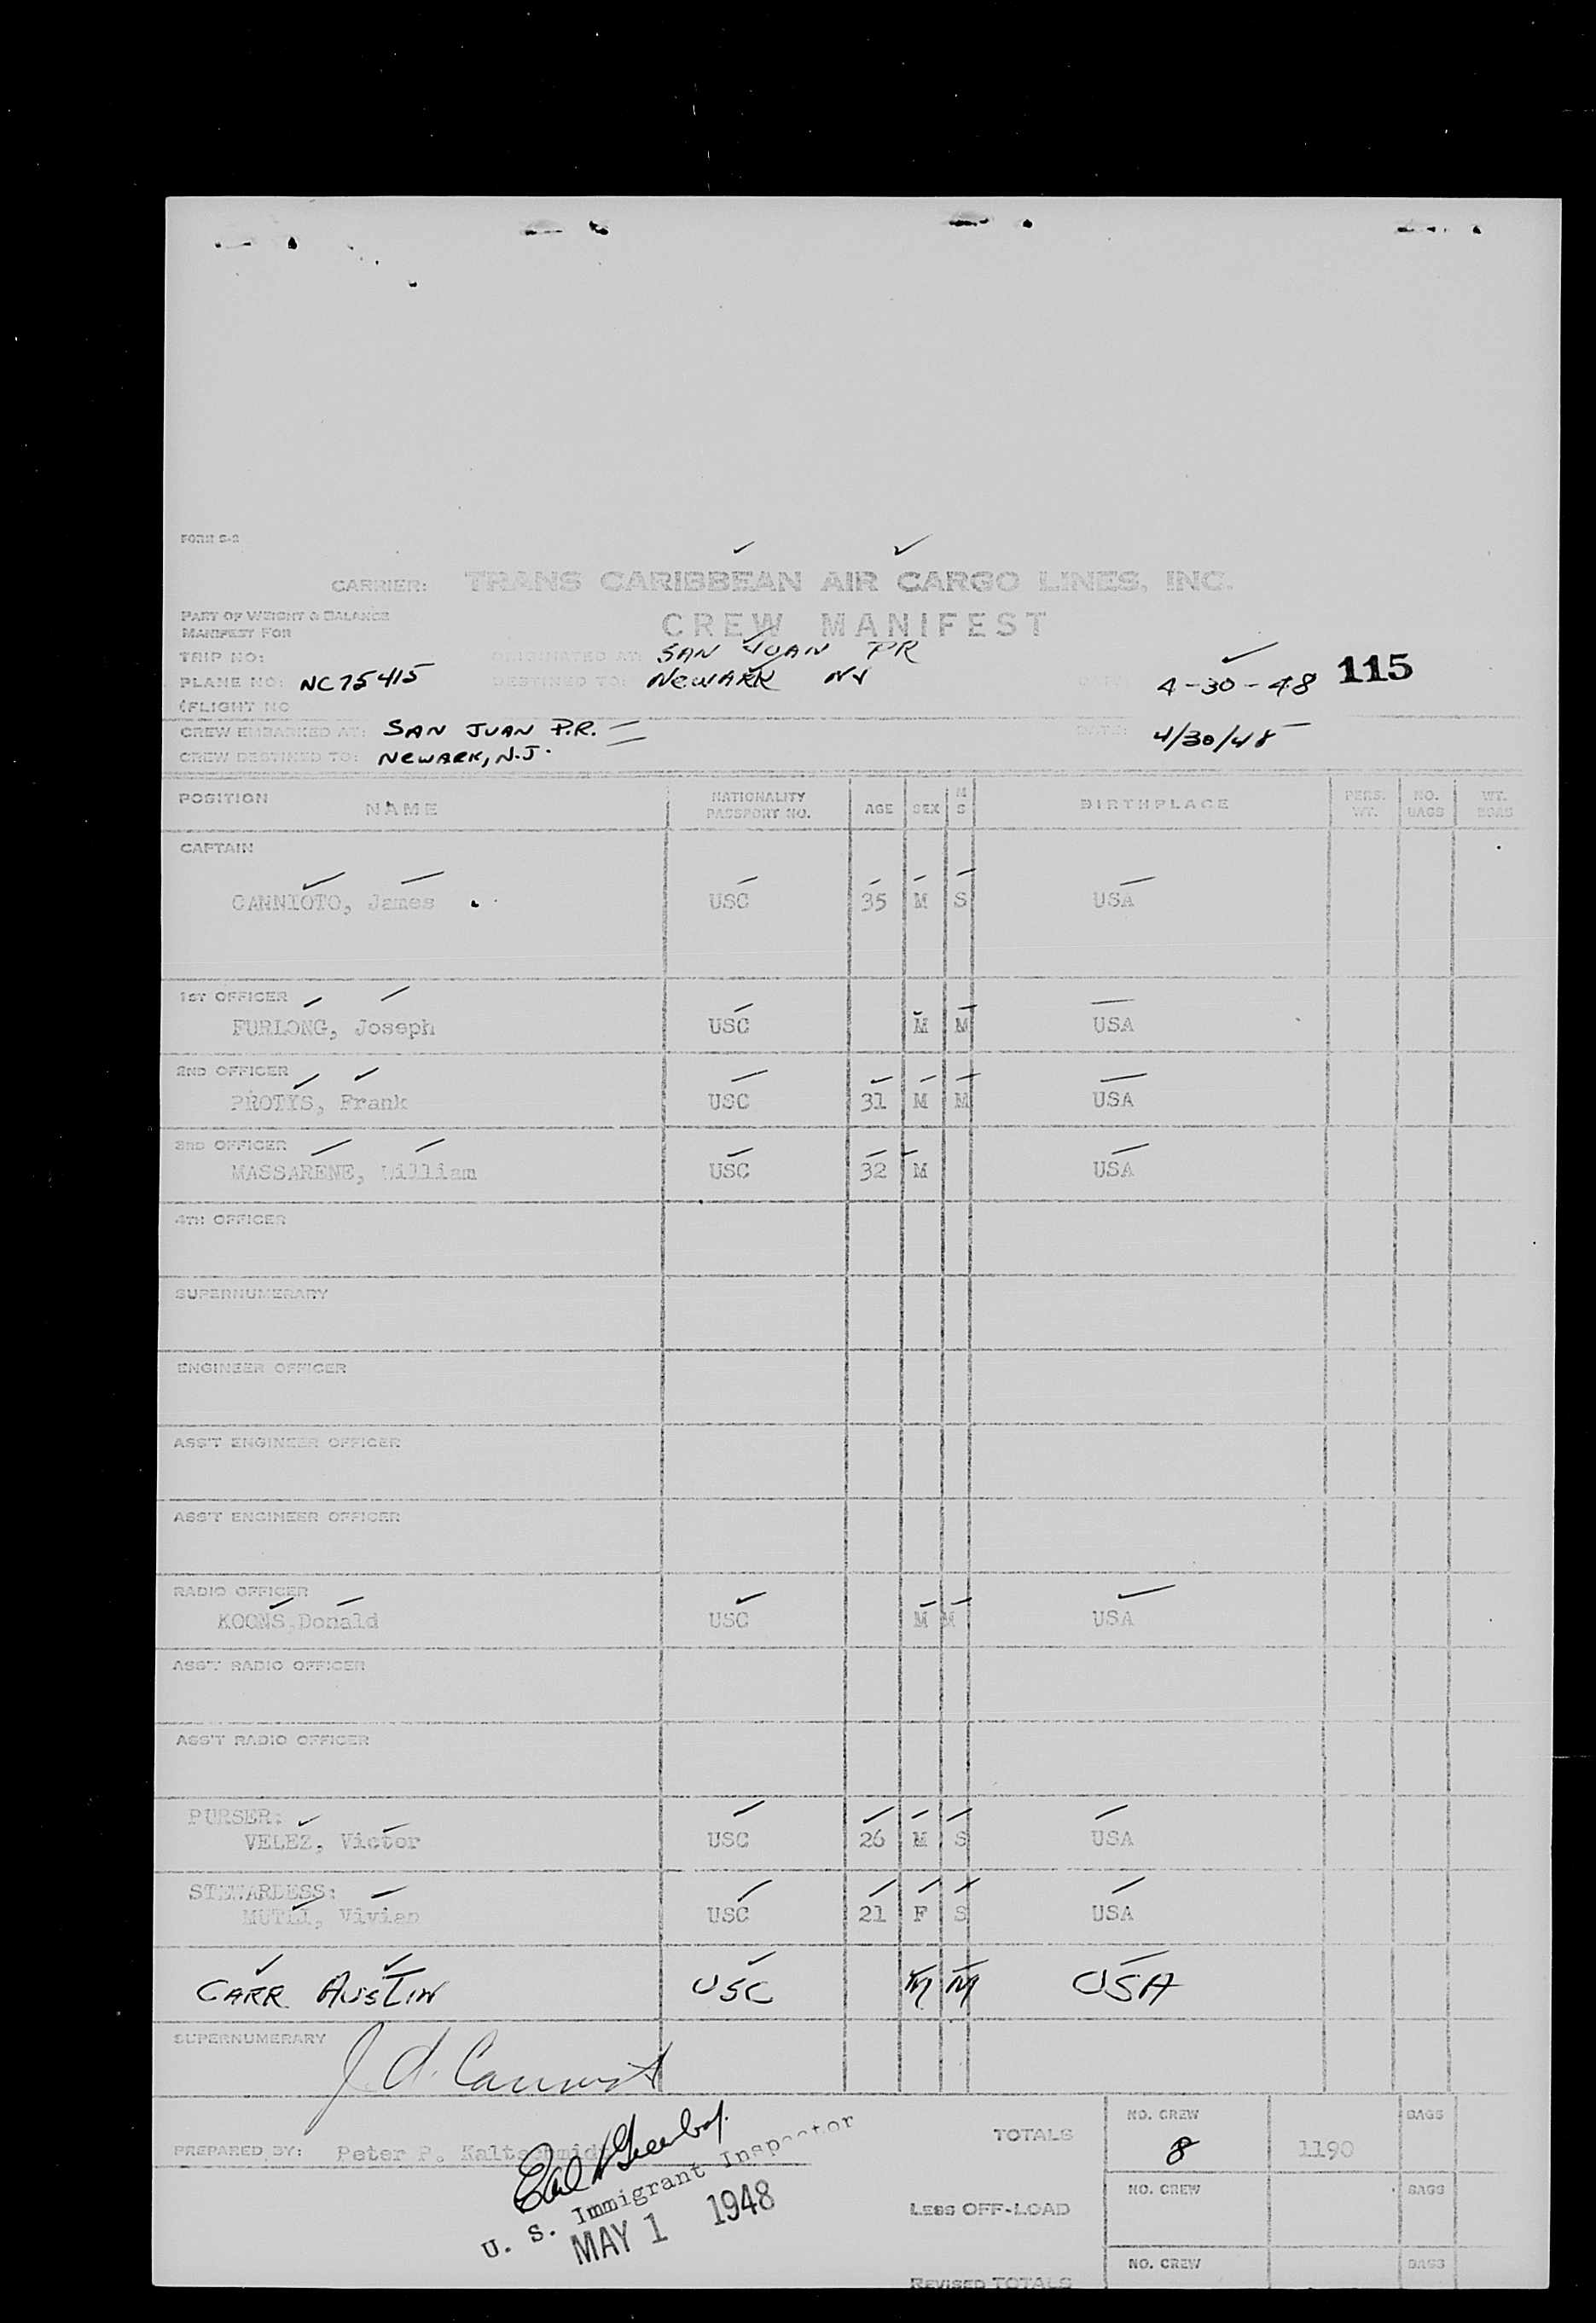 FORM S-2
CARRIER: TRANS CARIBBEAN AIR CARGO LINES, INC.
PART OF WEIGHT & BALANCE
MANIFEST FOR
CREW MANIFEST
TRIP NO: ORIGINATED AT: SAN JUAN PR
PLANE NO: NC75415 DESTINED TO: NEWARK NJ DATE 4-30-48 115
(FLIGHT NO
CREW EMBARKED AT: SAN JUAN P.R. DATE: 4/30/48
CREW DESTINED TO: NEWARK, N.J.
POSITION NAME NATIONALITY PASSPORT NO. AGE SEX M S BIRTHPLACE PERS. WT. NO. BAGS WT. BGAS
CAPTAIN
CANNIOTO, James USC 35 M S USA
1ST OFFICER
FURLONG, Joseph USC M M USA
2ND OFFICER
PROTYS, Frank USC 31 M M USA
3RD OFFICER
MASSARENE, William USC 32 M USA
4TH OFFICER
SUPERNUMERARY
ENGINEER OFFICER
ASS'T ENGINEER OFFICER
ASS'T ENGINEER OFFICER
RADIO OFFICER
KOONS, Donald USC M M USA
ASS'T RADIO OFFICER
ASS'T RADIO OFFICER
PURSER:
VELEZ, Victor USC 26 M S USA
STEWARDESS:
Vivian USC 21 F S USA
CARR AUSTIN USC M M USA
SUPERNUMERARY
J. A.
PREPARED BY: Peter P. Kaltschmidt
TOTALS NO. CREW 8 1190 BAGS
U. S. Immigrant Inspector
MAY 1 1948
LESS OFF-LOAD NO. CREW BAGS
REVISED TOTALS NO. CREW BAGS